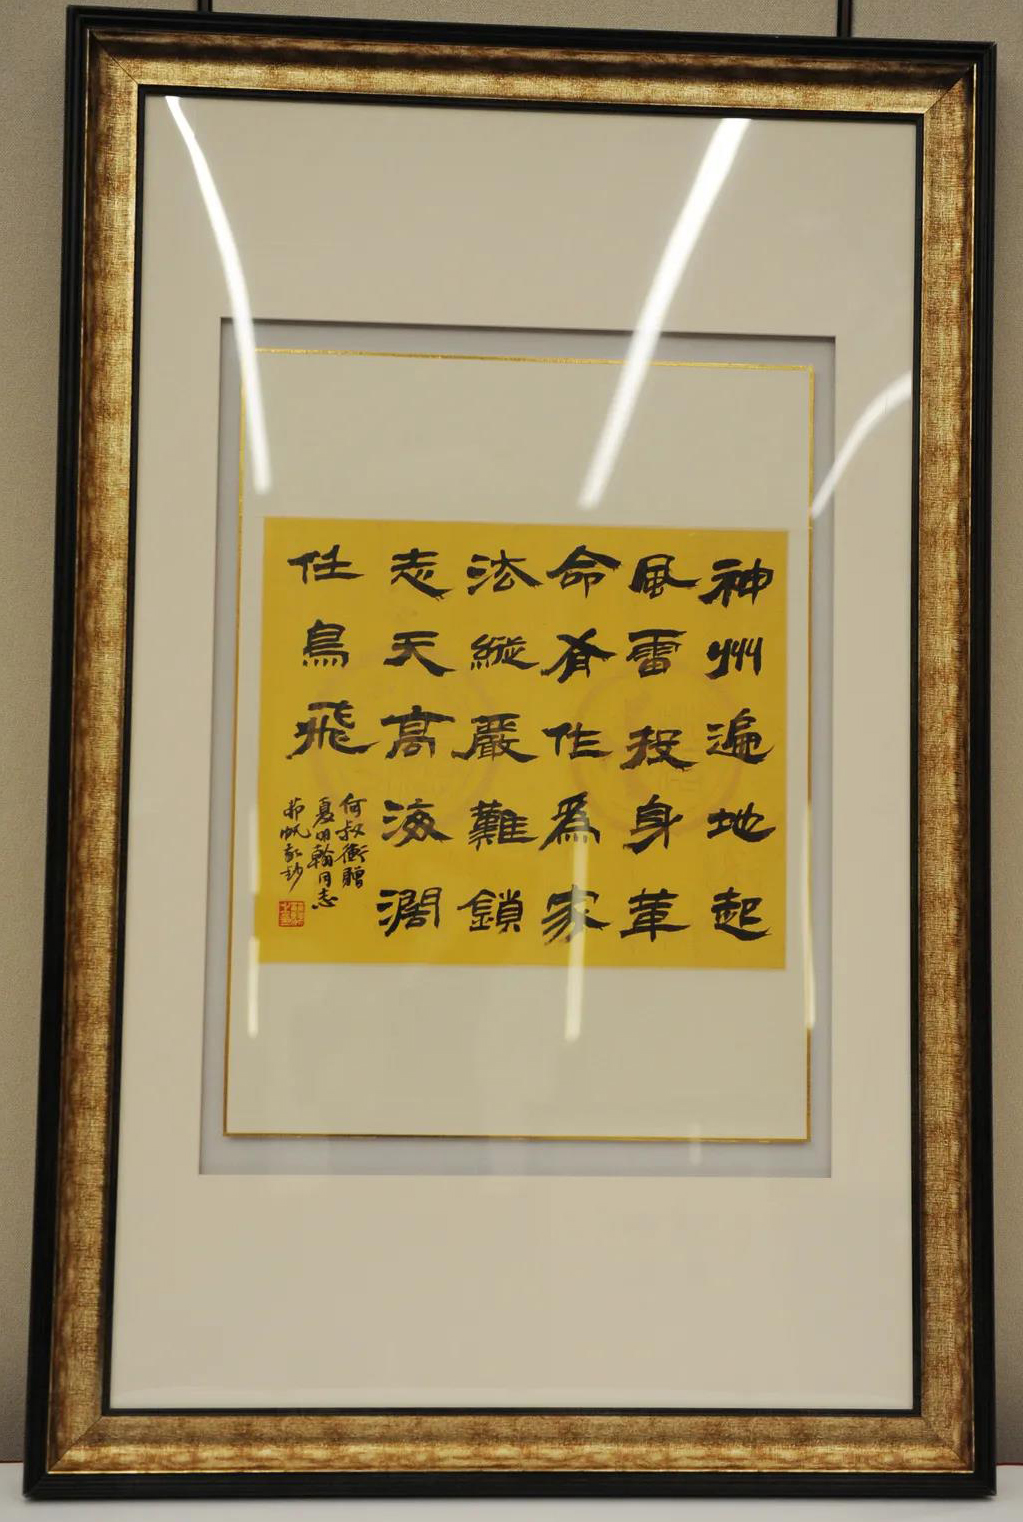 神州遍地起
風雷投身革
命有作爲家
法縱嚴難鎖
志天高海濶
任鳥飛
何叔衡贈
夏明翰同志
茆帆敬鈔